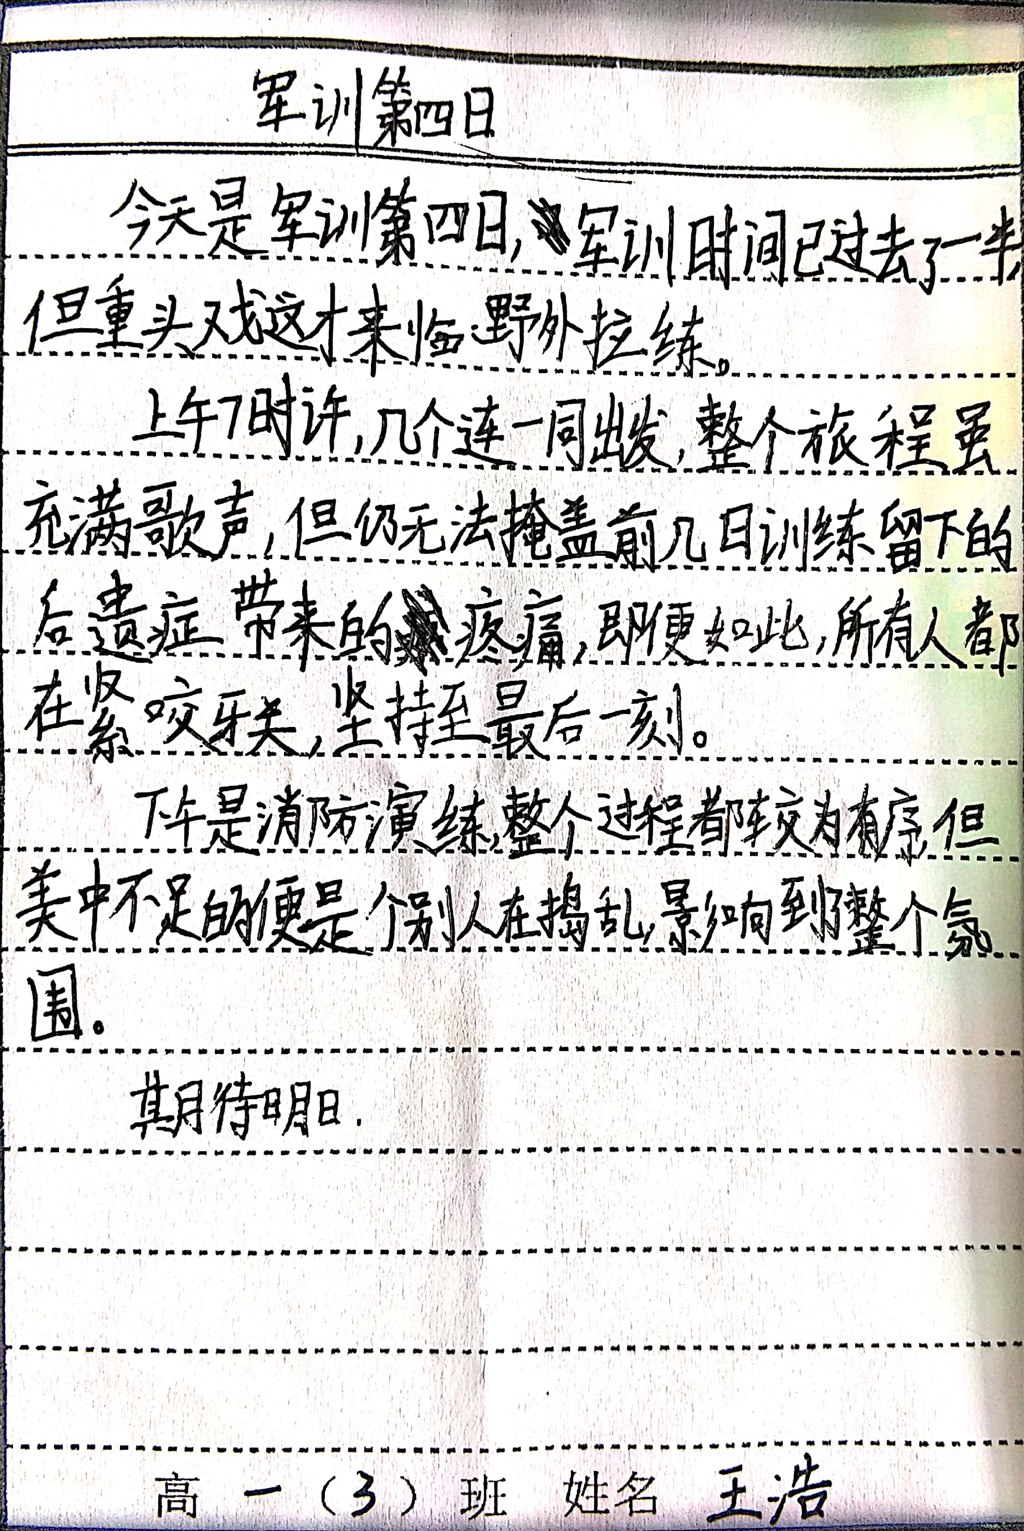 军训第四日
今天是军训第四日,军训时间已过去了一半,
但重头戏这才来临:野外拉练。
上午7时许,几个连一同出发,整个旅程虽
充满歌声,但仍无法掩盖前几日训练留下的
后遗症带来的疼痛,即便如此,所有人都
在紧咬牙关,坚持至最后一刻。
下午是消防演练,整个过程都较为有序,但
美中不足的便是个别人在捣乱,影响到了整个氛
围。
期待明日.
高一(3)班 姓名 王浩